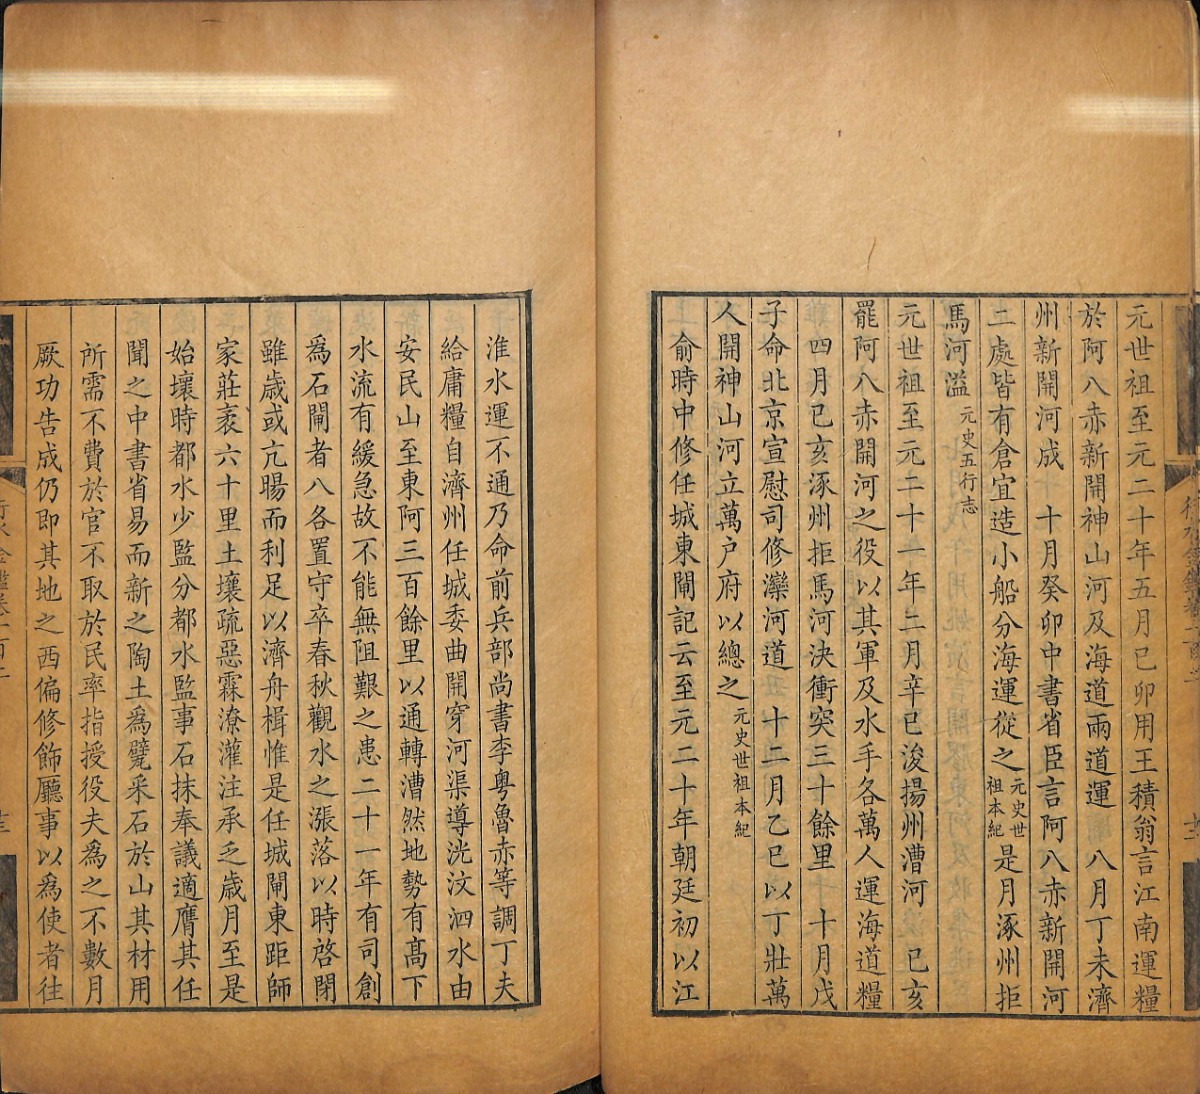 元世祖至元二十年五月己卯用王積翁言江南運糧
於阿八赤新開神山河及海道兩道運　八月丁未濟
州新開河成　十月癸卯中書省臣言阿八赤新開河
二處皆有倉宜造小船分海運從之元史世祖本紀是月涿州拒
馬河溢元史五行志
元世祖至元二十一年二月辛巳浚揚州漕河　己亥
罷阿八赤開河之役以其軍及水手各萬人運海道糧
四月己亥涿州拒馬河決衝突三十餘里　十月戊
子命北京宣慰司修灤河道　十二月乙巳以丁壯萬
人開神山河立萬户府以總之元史世祖本紀
俞時中修任城東閘記云至元二十年朝廷初以江
淮水運不通乃命前兵部尚書李粤魯赤等調丁夫
給庸糧自濟州任城委曲開穿河渠導洸汶泗水由
安民山至東阿三百餘里以通轉漕然地勢有高下
水流有緩急故不能無阻艱之患二十一年有司創
為石閘者八各置守卒春秋觀水之漲落以時啓閉
雖歲或亢暘而利足以濟舟楫惟是任城閘東距師
家莊袤六十里土壤疏惡霖潦灌注承乏歲月至是
始壞時都水少監分都水監事石抹奉議適膺其任
聞之中書省易而新之陶土為甓采石於山其材用
所需不費於官不取於民率指授役夫為之不數月
厥功告成仍即其地之西偏修飾廳事以為使者往